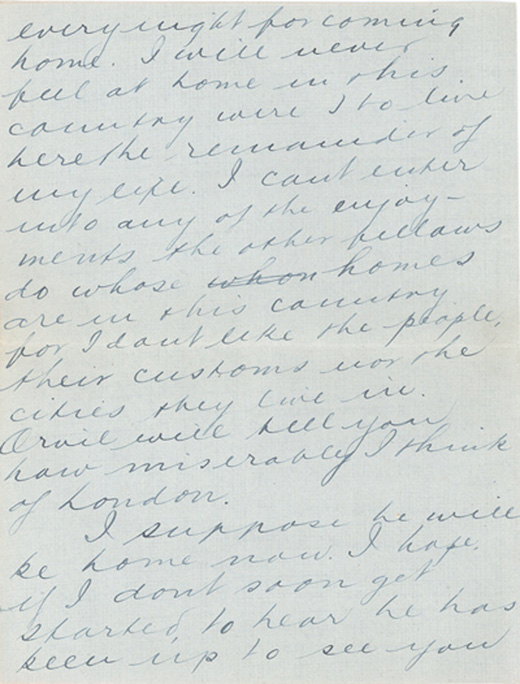 every night for coming
home. I will never
feel at home in this
country were I to live
here the remainder of
my life. I cant enter
into any of the enjoy-
ments the other fellows
do whose whon homes
are in this country
for I dont like the people,
their customs nor the
cities they live in.
Orvil will tell you
how miserably I think
of London.
I suppose he will
be home now. I hope
if I dont soon get
started, to hear he has
been up to see you